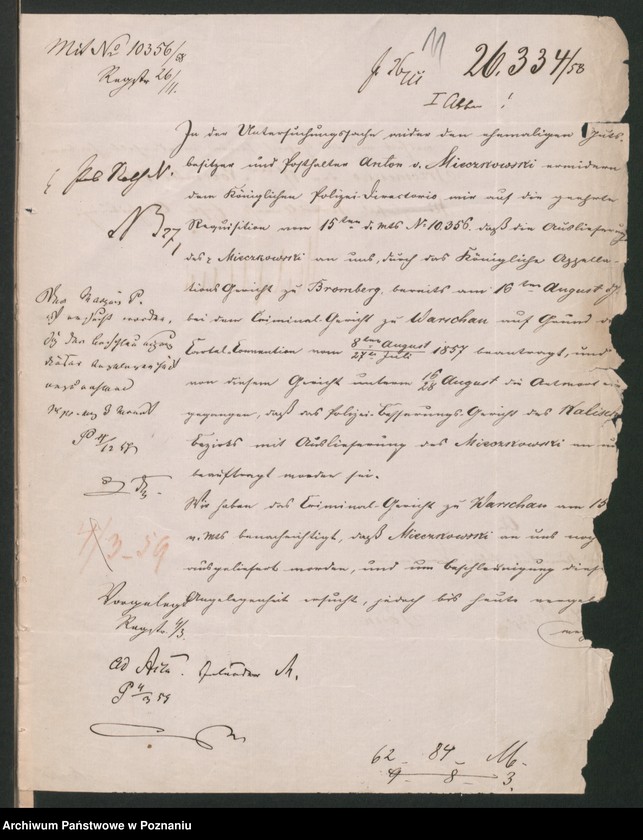 Mit No 10356/58
Regstr. 26/11.
26.334/58
I Abth
In der Untersuchungssache wider den ehemaligen Guts-
besitzer und Posthalter Anton v. Mieczkowski erwidern
dem Königlichen Polizei-Directorio wir auf die geehrte
Requisition vom 15ten d. Mts No 10.356. daß die Auslieferung
des Mieczkowski an uns, durch das Königliche Appella-
tions Gericht zu Bromberg, bereits am 16ten August
bei dem Criminal-Gericht zu Warschau auf Grund
Cartel-Convention vom 8ten August/27ten Juli 1857 beantragt, und
von diesem Gericht unterm 16/28 August die Antwort ein
gegangen, daß das Polizei-Besserungs-Gericht des Kalisch
Bezirks mit Auslieferung des Mieczkowski an
beauftragt worden sei.
Wir haben das Criminal-Gericht zu Warschau am 15
v. Mts benachrichtigt, daß Mieczkowski an uns
ausgeliefert worden, und um Beschleunigung
Angelegenheit ersucht, jedoch bis heute
NB 27/1
ist ersucht worden,
dieser Angelegenheit
4/3-59
Vorgelegt
Regstr. 4/3.
ad Acta.
P 4/3 59
62 - 84 - M.
9 - 8 - 3.
Archiwum Państwowe w Poznaniu